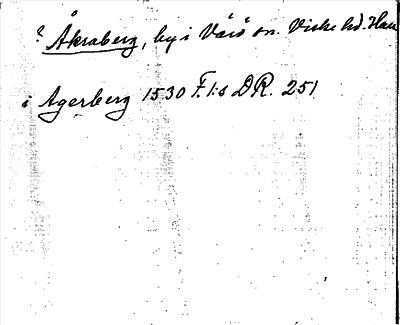 ? Åkraberg, by i Värö sn. Viske hd. Hall
i Agerberg 1530 F.I:s DR. 251